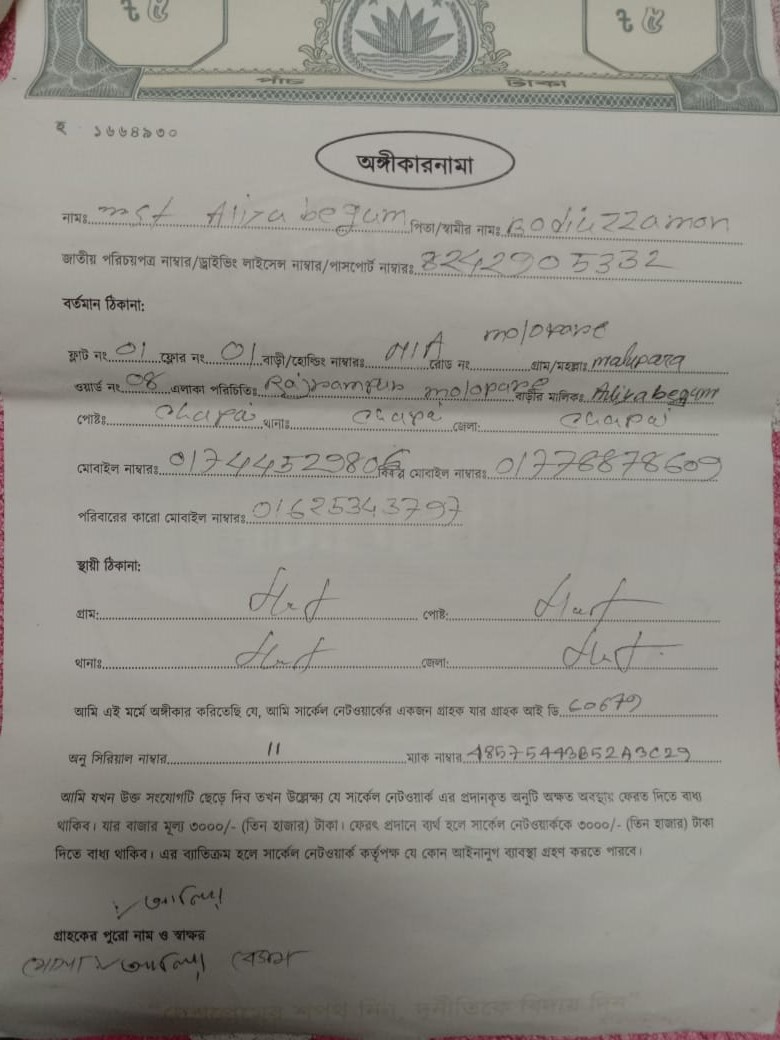 ৳ ৫ ৳ ৫
পাঁচ টাকা
ব ১৬৬৪৯৩০
অঙ্গীকারনামা
নামঃ mst Aliza begum পিতা/স্বামীর নামঃ Bodiuzzamon
জাতীয় পরিচয়পত্র নাম্বার/ড্রাইভিং লাইসেন্স নাম্বার/পাসপোর্ট নাম্বারঃ 8242905332
বর্তমান ঠিকানা:
molopare
ফ্লাট নং 01 ফ্লোর নং 01 বাড়ী/হোল্ডিং নাম্বারঃ N/A রোড নং গ্রাম/মহল্লাঃ malupara
ওয়ার্ড নং 08 এলাকা পরিচিতিঃ Rajrampur molopare বাড়ীর মালিকঃ Aliza begum
পোষ্টঃ chapai থানাঃ chapai জেলা: chapai
মোবাইল নাম্বারঃ 01744452980 মোবাইল নাম্বারঃ 01778878609
পরিবারের কারো মোবাইল নাম্বারঃ 01625343797
স্থায়ী ঠিকানা:
গ্রাম: পোষ্ট:
থানাঃ জেলা:
আমি এই মর্মে অঙ্গীকার করিতেছি যে, আমি সার্কেল নেটওয়ার্কের একজন গ্রাহক যার গ্রাহক আই ডি C0679
অনু সিরিয়াল নাম্বার 11 ম্যাক নাম্বার 48575443B52A3C29
আমি যখন উক্ত সংযোগটি ছেড়ে দিব তখন উল্লেক্ষ্য যে সার্কেল নেটওয়ার্ক এর প্রদানকৃত অনুটি অক্ষত অবস্থায় ফেরত দিতে বাধ্য
থাকিব। যার বাজার মূল্য ৩০০০/- (তিন হাজার) টাকা। ফেরৎ প্রদানে ব্যর্থ হলে সার্কেল নেটওয়ার্ককে ৩০০০/- (তিন হাজার) টাকা
দিতে বাধ্য থাকিব। এর ব্যতিক্রম হলে সার্কেল নেটওয়ার্ক কর্তৃপক্ষ যে কোন আইনানুগ ব্যাবস্থা গ্রহণ করতে পারবে।
গ্রাহকের পুরো নাম ও স্বাক্ষর
বেগম